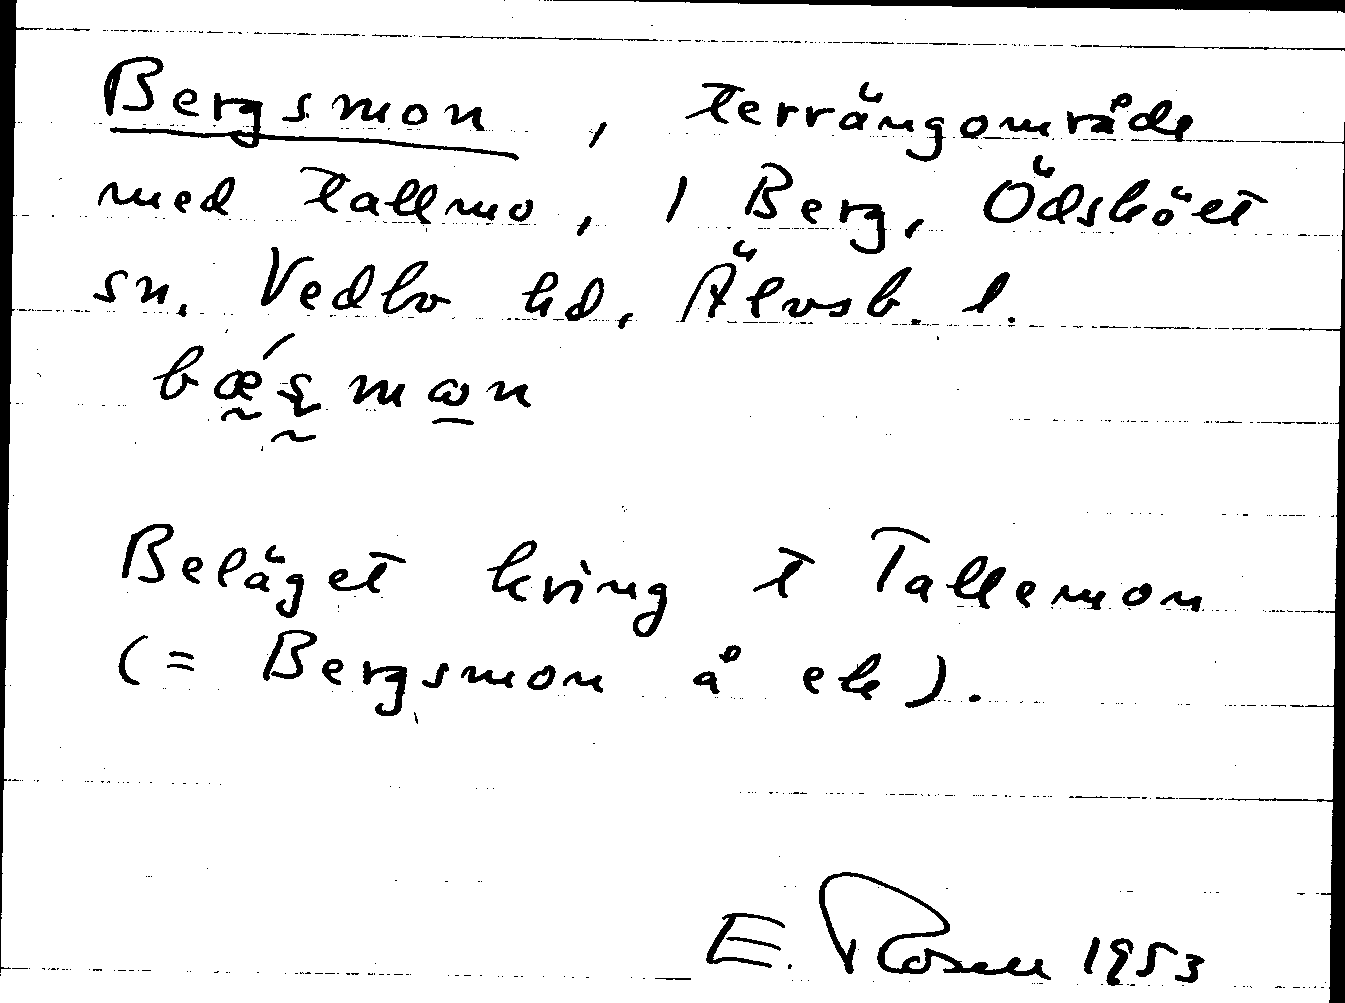 Bergsmon, terrängområde
med tallmo, 1 Berg, Ödskölt
sn. Vedbo hd, Älvsb. l.
Beläget kring t Tallemon
(= Bergsmon å ek).
E. Rosell 1953